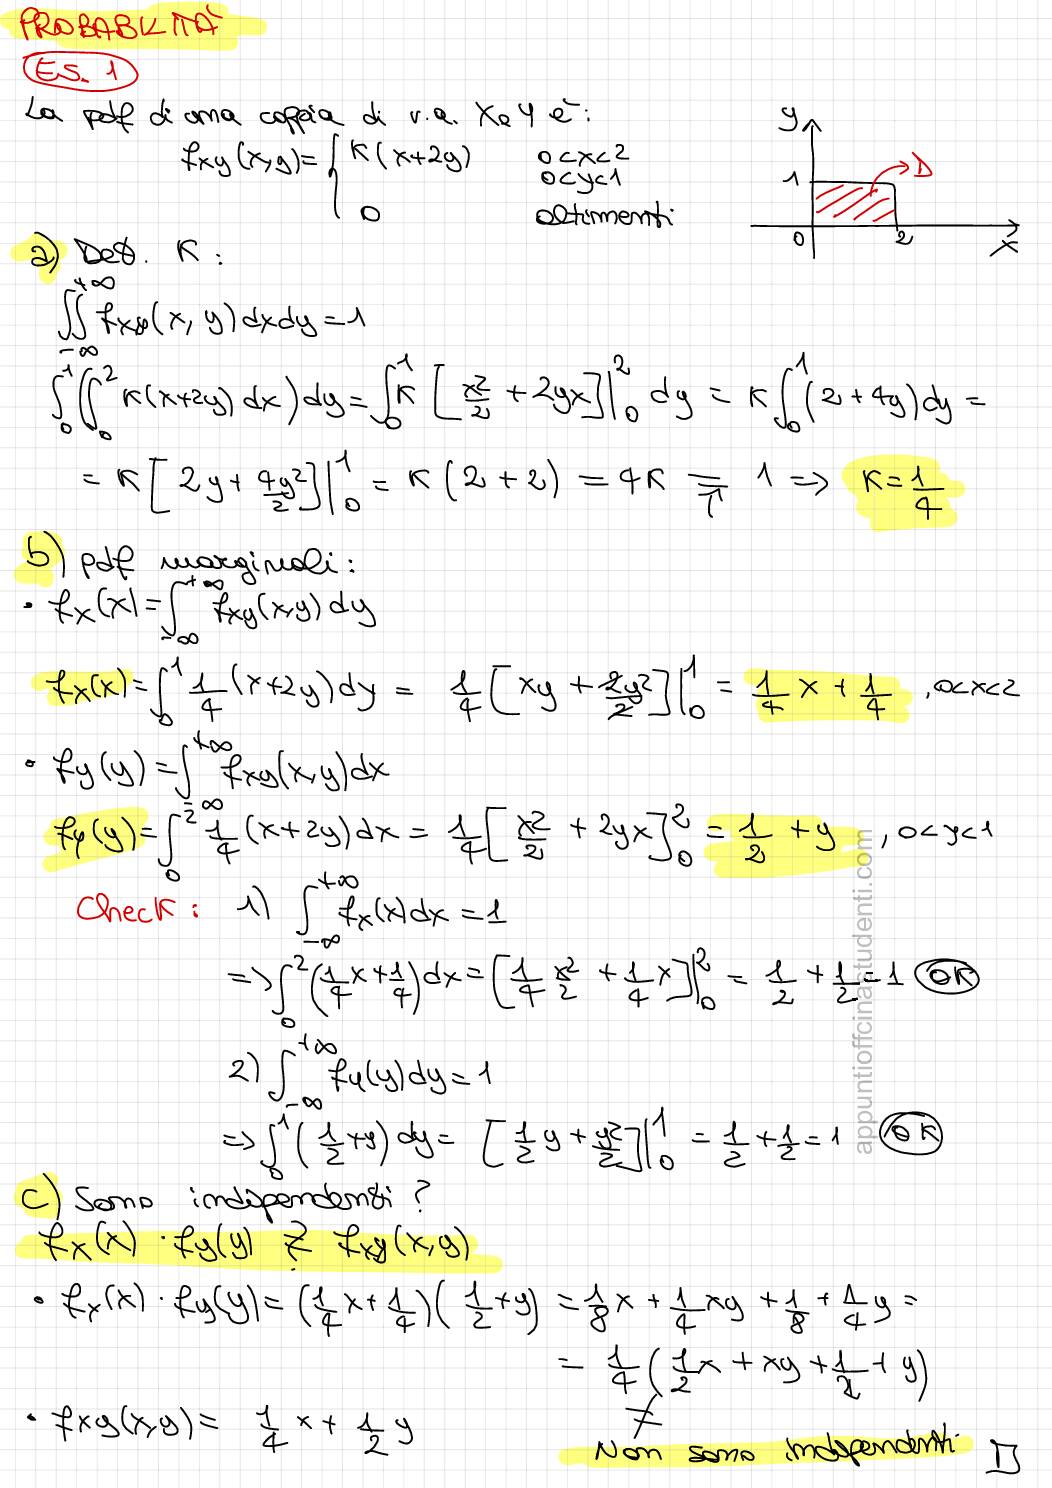 PROBABILITÀ
ES. 1
La pdf di una coppia di r.a. X e Y è:
fxy(x,y) = { K(x+2y) 0<x<2
0<y<1
0 altrimenti
y
1
D
0 2 x
a) Det. K:
∬_{-∞}^{+∞} fxy(x,y) dxdy = 1
∫_0^1 (∫_0^2 K(x+2y) dx) dy = ∫_0^1 K [x²/2 + 2yx]|_0^2 dy = K ∫_0^1 (2+4y) dy =
= K [2y + 4y²/2]|_0^1 = K(2+2) = 4K = 1 => K = 1/4
↑
b) pdf marginali:
• fx(x) = ∫_{-∞}^{+∞} fxy(x,y) dy
fx(x) = ∫_0^1 1/4 (x+2y) dy = 1/4 [xy + 2y²/2]|_0^1 = 1/4 x + 1/4 , 0<x<2
• fy(y) = ∫_{-∞}^{+∞} fxy(x,y) dx
fy(y) = ∫_0^2 1/4 (x+2y) dx = 1/4 [x²/2 + 2yx]_0^2 = 1/2 + y , 0<y<1
Check: 1) ∫_{-∞}^{+∞} fx(x) dx = 1
=> ∫_0^2 (1/4 x + 1/4) dx = [1/4 x²/2 + 1/4 x]|_0^2 = 1/2 + 1/2 = 1 OK
2) ∫_{-∞}^{+∞} fy(y) dy = 1
=> ∫_0^1 (1/2 + y) dy = [1/2 y + y²/2]|_0^1 = 1/2 + 1/2 = 1 OK
c) Sono indipendenti?
fx(x) · fy(y) ≟ fxy(x,y)
• fx(x) · fy(y) = (1/4 x + 1/4)(1/2 + y) = 1/8 x + 1/4 xy + 1/8 + 1/4 y =
= 1/4 (1/2 x + xy + 1/2 + y)
≠
• fxy(x,y) = 1/4 x + 1/2 y
Non sono indipendenti □
appuntioffcinastudenti.com